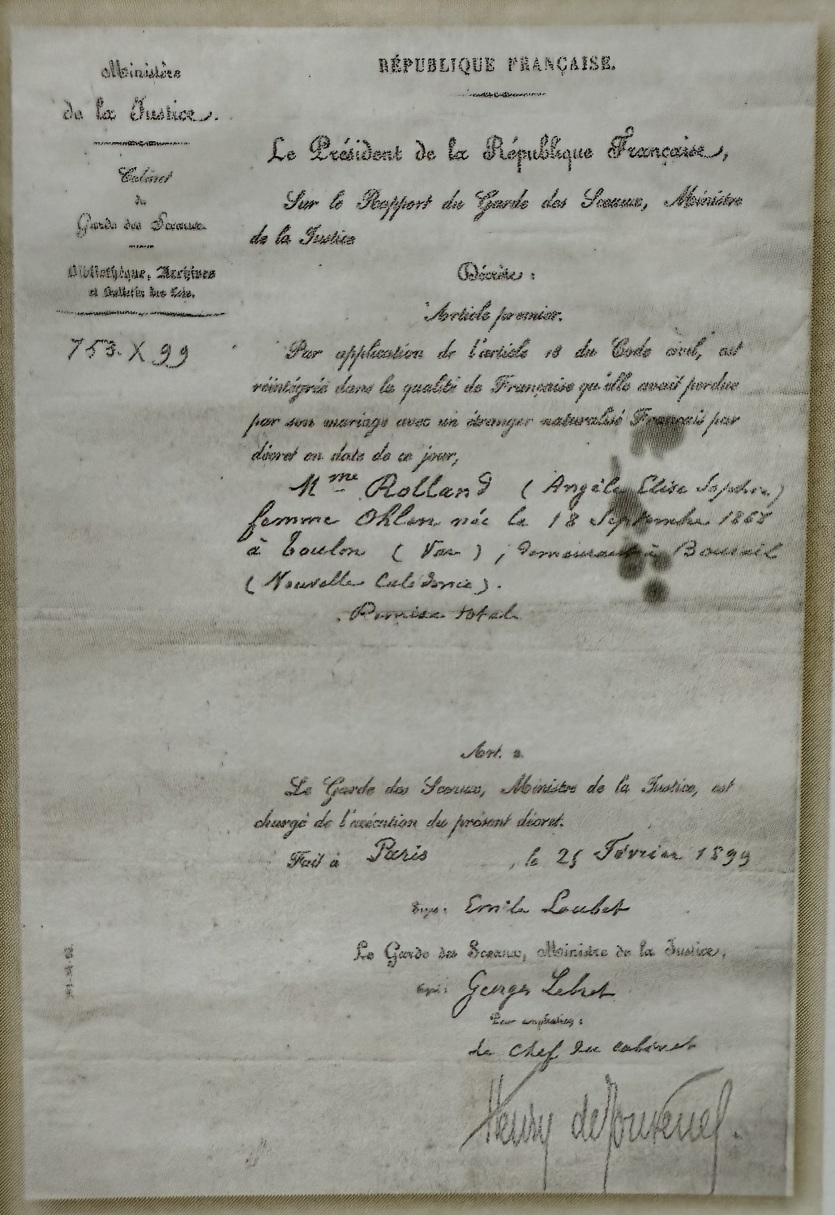 Ministère
de la Justice.
Cabinet
du
Garde des Sceaux.
Bibliothèque, Archives
et Bulletin des Lois.
753 X 99
RÉPUBLIQUE FRANÇAISE.
Le Président de la République Française,
Sur le Rapport du Garde des Sceaux, Ministre
de la Justice
Décrète :
Article premier.
Par application de l'article 18 du Code civil, est
réintégrée dans la qualité de Française qu'elle avait perdue
par son mariage avec un étranger naturalisé Français par
décret en date de ce jour,
Mme Rolland (Angèle Elise Sophie)
femme Ohlen née le 18 Septembre 1868
à Toulon (Var) ; demeurant à Bourail
(Nouvelle Calédonie).
Remise totale
Art. 2.
Le Garde des Sceaux, Ministre de la Justice, est
chargé de l'exécution du présent décret.
Fait à Paris, le 25 Février 1899
Signé : Emile Loubet
Le Garde des Sceaux, Ministre de la Justice,
Signé : Georges Lebret
Pour ampliation :
Le chef du cabinet
Henry de Jouvenel.